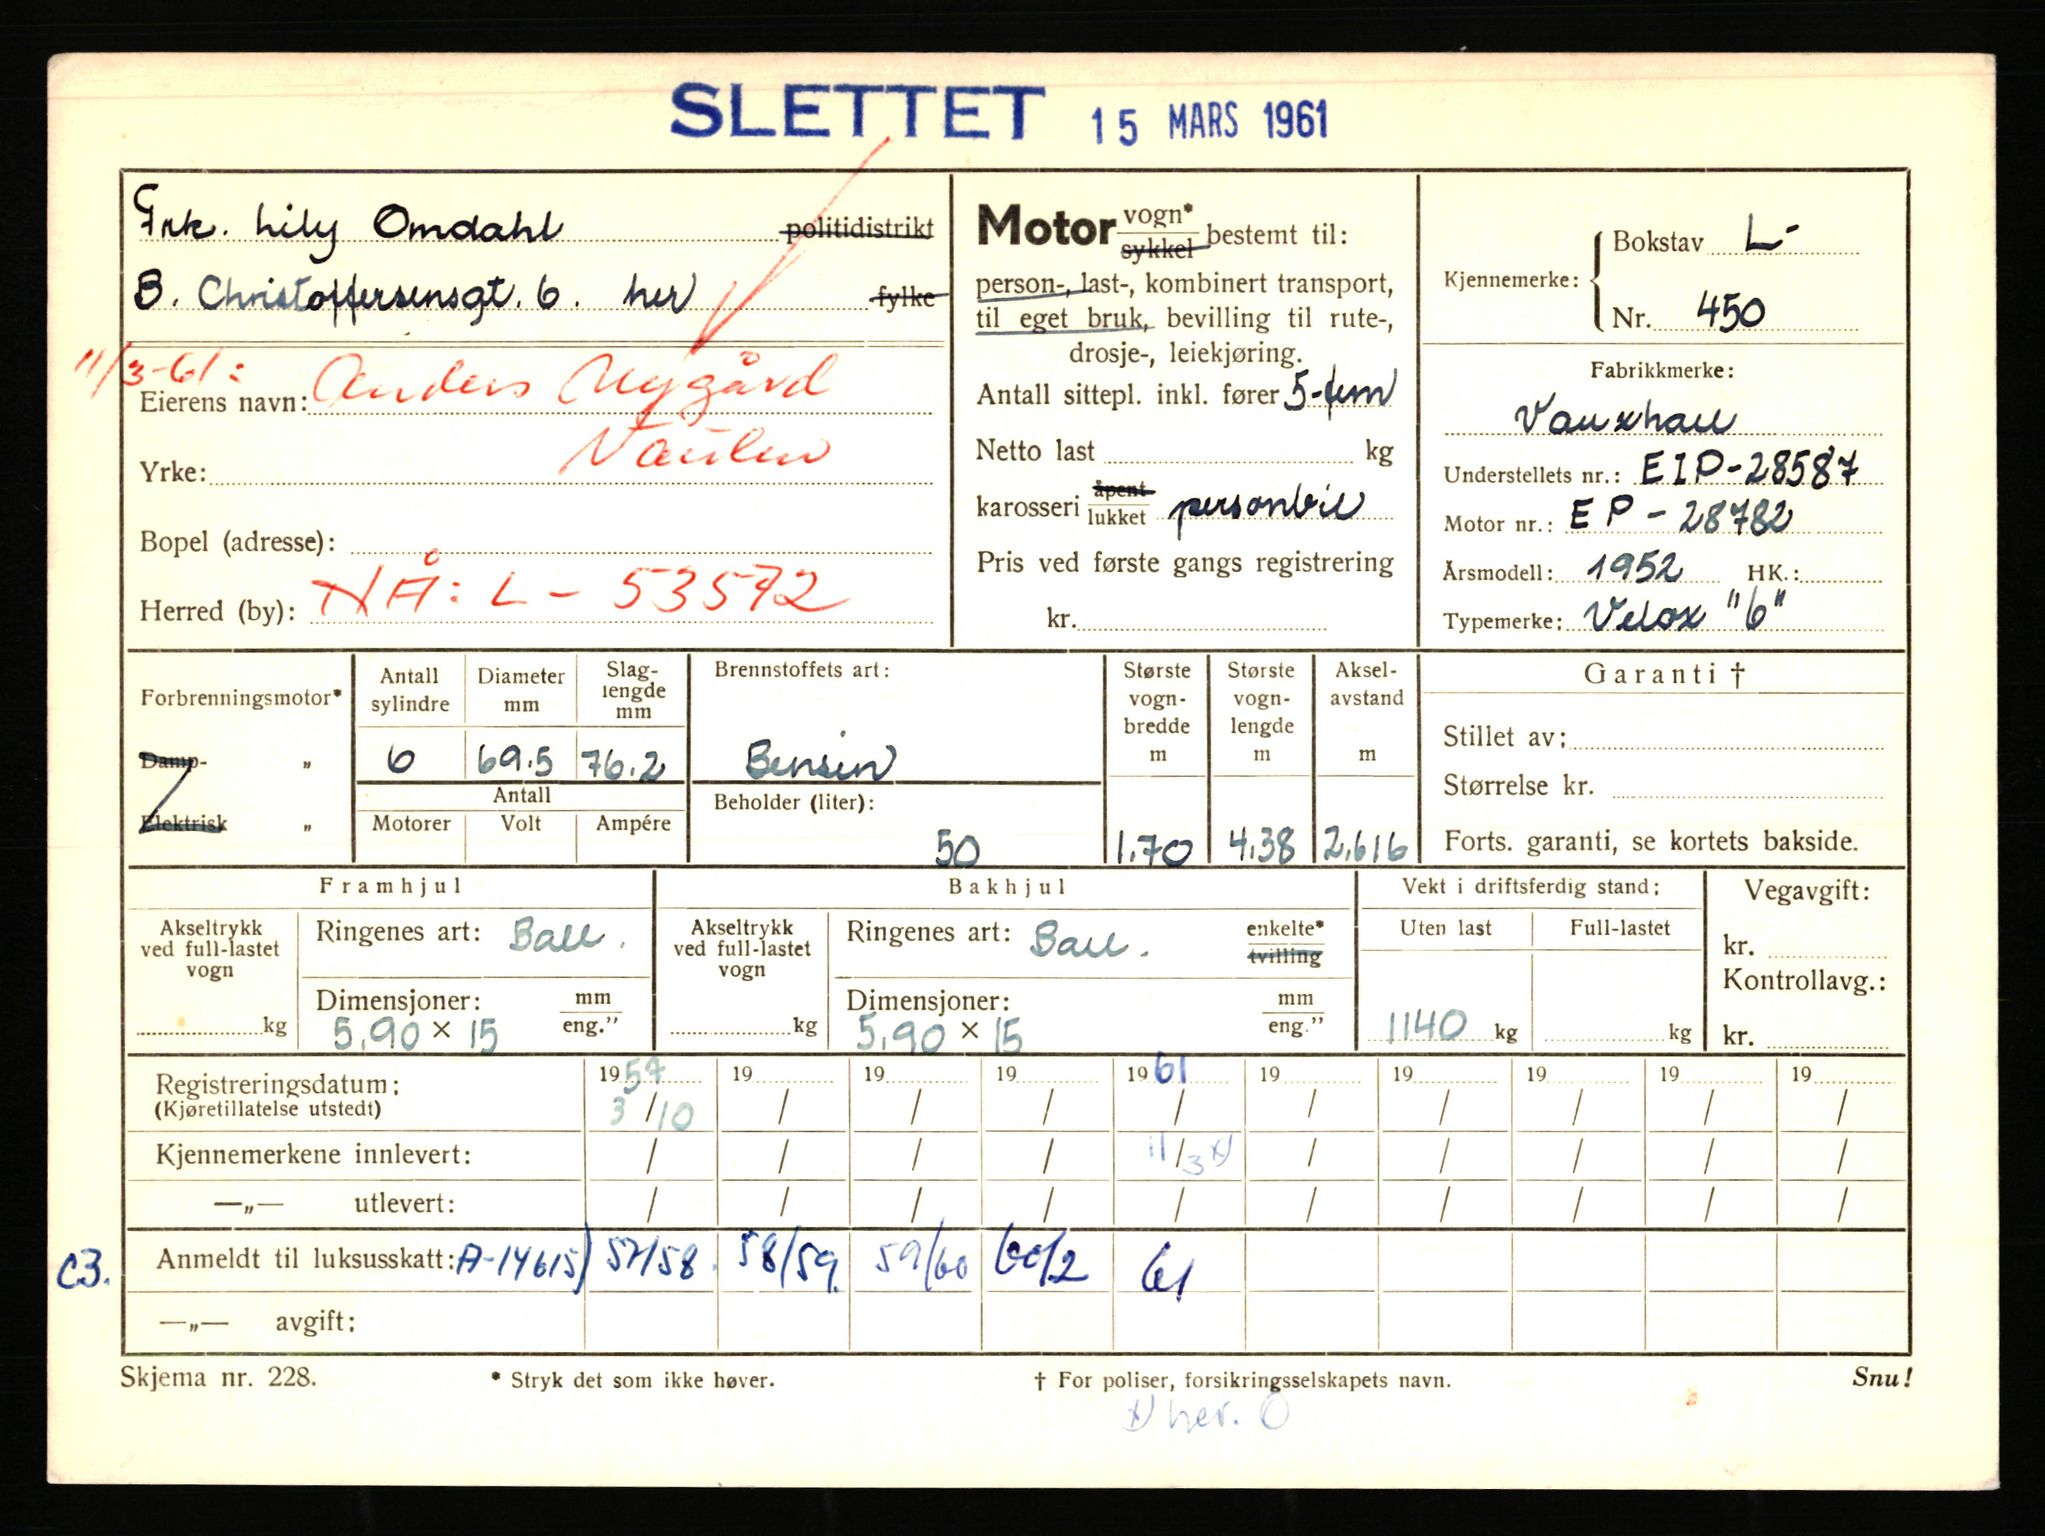 SLETTET 15 MARS 1961
Frk. Lily Omdahl politidistrikt
B. Christoffersensgt. 6. her fylke
11/3-61:
Eierens navn: Anders Nygård
Yrke: Vaulen
Bopel (adresse):
Herred (by): NÅ: L - 53572
Motor vogn* sykkel bestemt til:
person-, last-, kombinert transport,
til eget bruk, bevilling til rute-,
drosje-, leiekjøring.
Antall sittepl. inkl. fører 5-fem
Netto last kg
karosseri åpent lukket personbil
Pris ved første gangs registrering
kr.
Kjennemerke: Bokstav L-
Nr. 450
Fabrikkmerke:
Vauxhall
Understellets nr.: EIP-28587
Motor nr.: EP - 28782
Årsmodell: 1952 HK.:
Typemerke: Velox "6"
Forbrenningsmotor*
Damp- „
Elektrisk „
Antall sylindre Diameter mm Slag-lengde mm
6 69.5 76.2
Antall
Motorer Volt Ampére
Brennstoffets art:
Bensin
Beholder (liter):
50
Største vogn-bredde m
1.70
Største vogn-lengde m
4.38
Aksel-avstand m
2.616
Garanti †
Stillet av:
Størrelse kr.
Forts. garanti, se kortets bakside.
Framhjul
Akseltrykk ved full-lastet vogn
kg
Ringenes art: Ball.
Dimensjoner: mm eng.”
5,90 × 15
Bakhjul
Akseltrykk ved full-lastet vogn
kg
Ringenes art: Ball. enkelte* tvilling
Dimensjoner: mm eng.”
5,90 × 15
Vekt i driftsferdig stand:
Uten last Full-lastet
1140 kg kg
Vegavgift:
kr.
Kontrollavg.:
kr.
Registreringsdatum: 1957 19 19 19 1961 19 19 19 19 19
(Kjøretillatelse utstedt) 3/10 / / / / / / / / /
Kjennemerkene innlevert: / / / / 11/3 x) / / / / /
—„— utlevert: / / / / / / / / / /
C3. Anmeldt til luksusskatt: A-14615) 57/58. 58/59. 59/60 60/2 61
—„— avgift:
Skjema nr. 228. * Stryk det som ikke høver. † For poliser, forsikringsselskapets navn. Snu!
x) her.